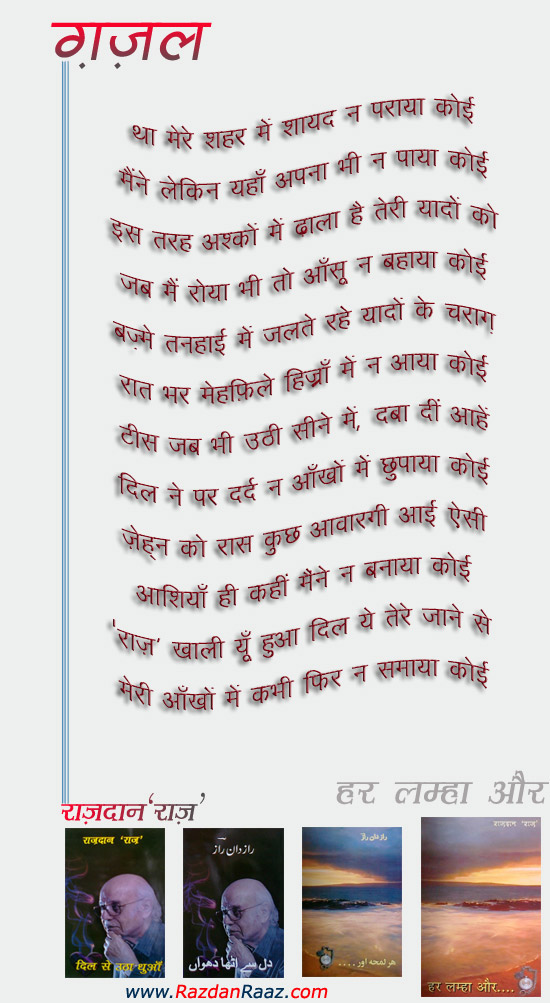 ग़ज़ल
था मेरे शहर में शायद न पराया कोई
मैंने लेकिन यहाँ अपना भी न पाया कोई
इस तरह अश्कों में ढाला है तेरी यादों को
जब मैं रोया भी तो आँसू न बहाया कोई
बज़्मे तनहाई में जलते रहे यादों के चराग़
रात भर मेहफ़िले हिज्राँ में न आया कोई
टीस जब भी उठी सीने में, दबा दीं आहें
दिल ने पर दर्द न आँखों में छुपाया कोई
ज़ेह्न को रास कुछ आवारगी आई ऐसी
आशियाँ ही कहीं मैंने न बनाया कोई
'राज़' खाली यूँ हुआ दिल ये तेरे जाने से
मेरी आँखों में कभी फिर न समाया कोई
हर लम्हा और
राज़दान 'राज़'
राज़दान 'राज़'
दिल से उठा धुआँ
راز دان راز
دل سے اٹھا دھواں
راز دان راز
ہر لمحہ اور ....
राज़दान 'राज़'
हर लम्हा और....
www.RazdanRaaz.com